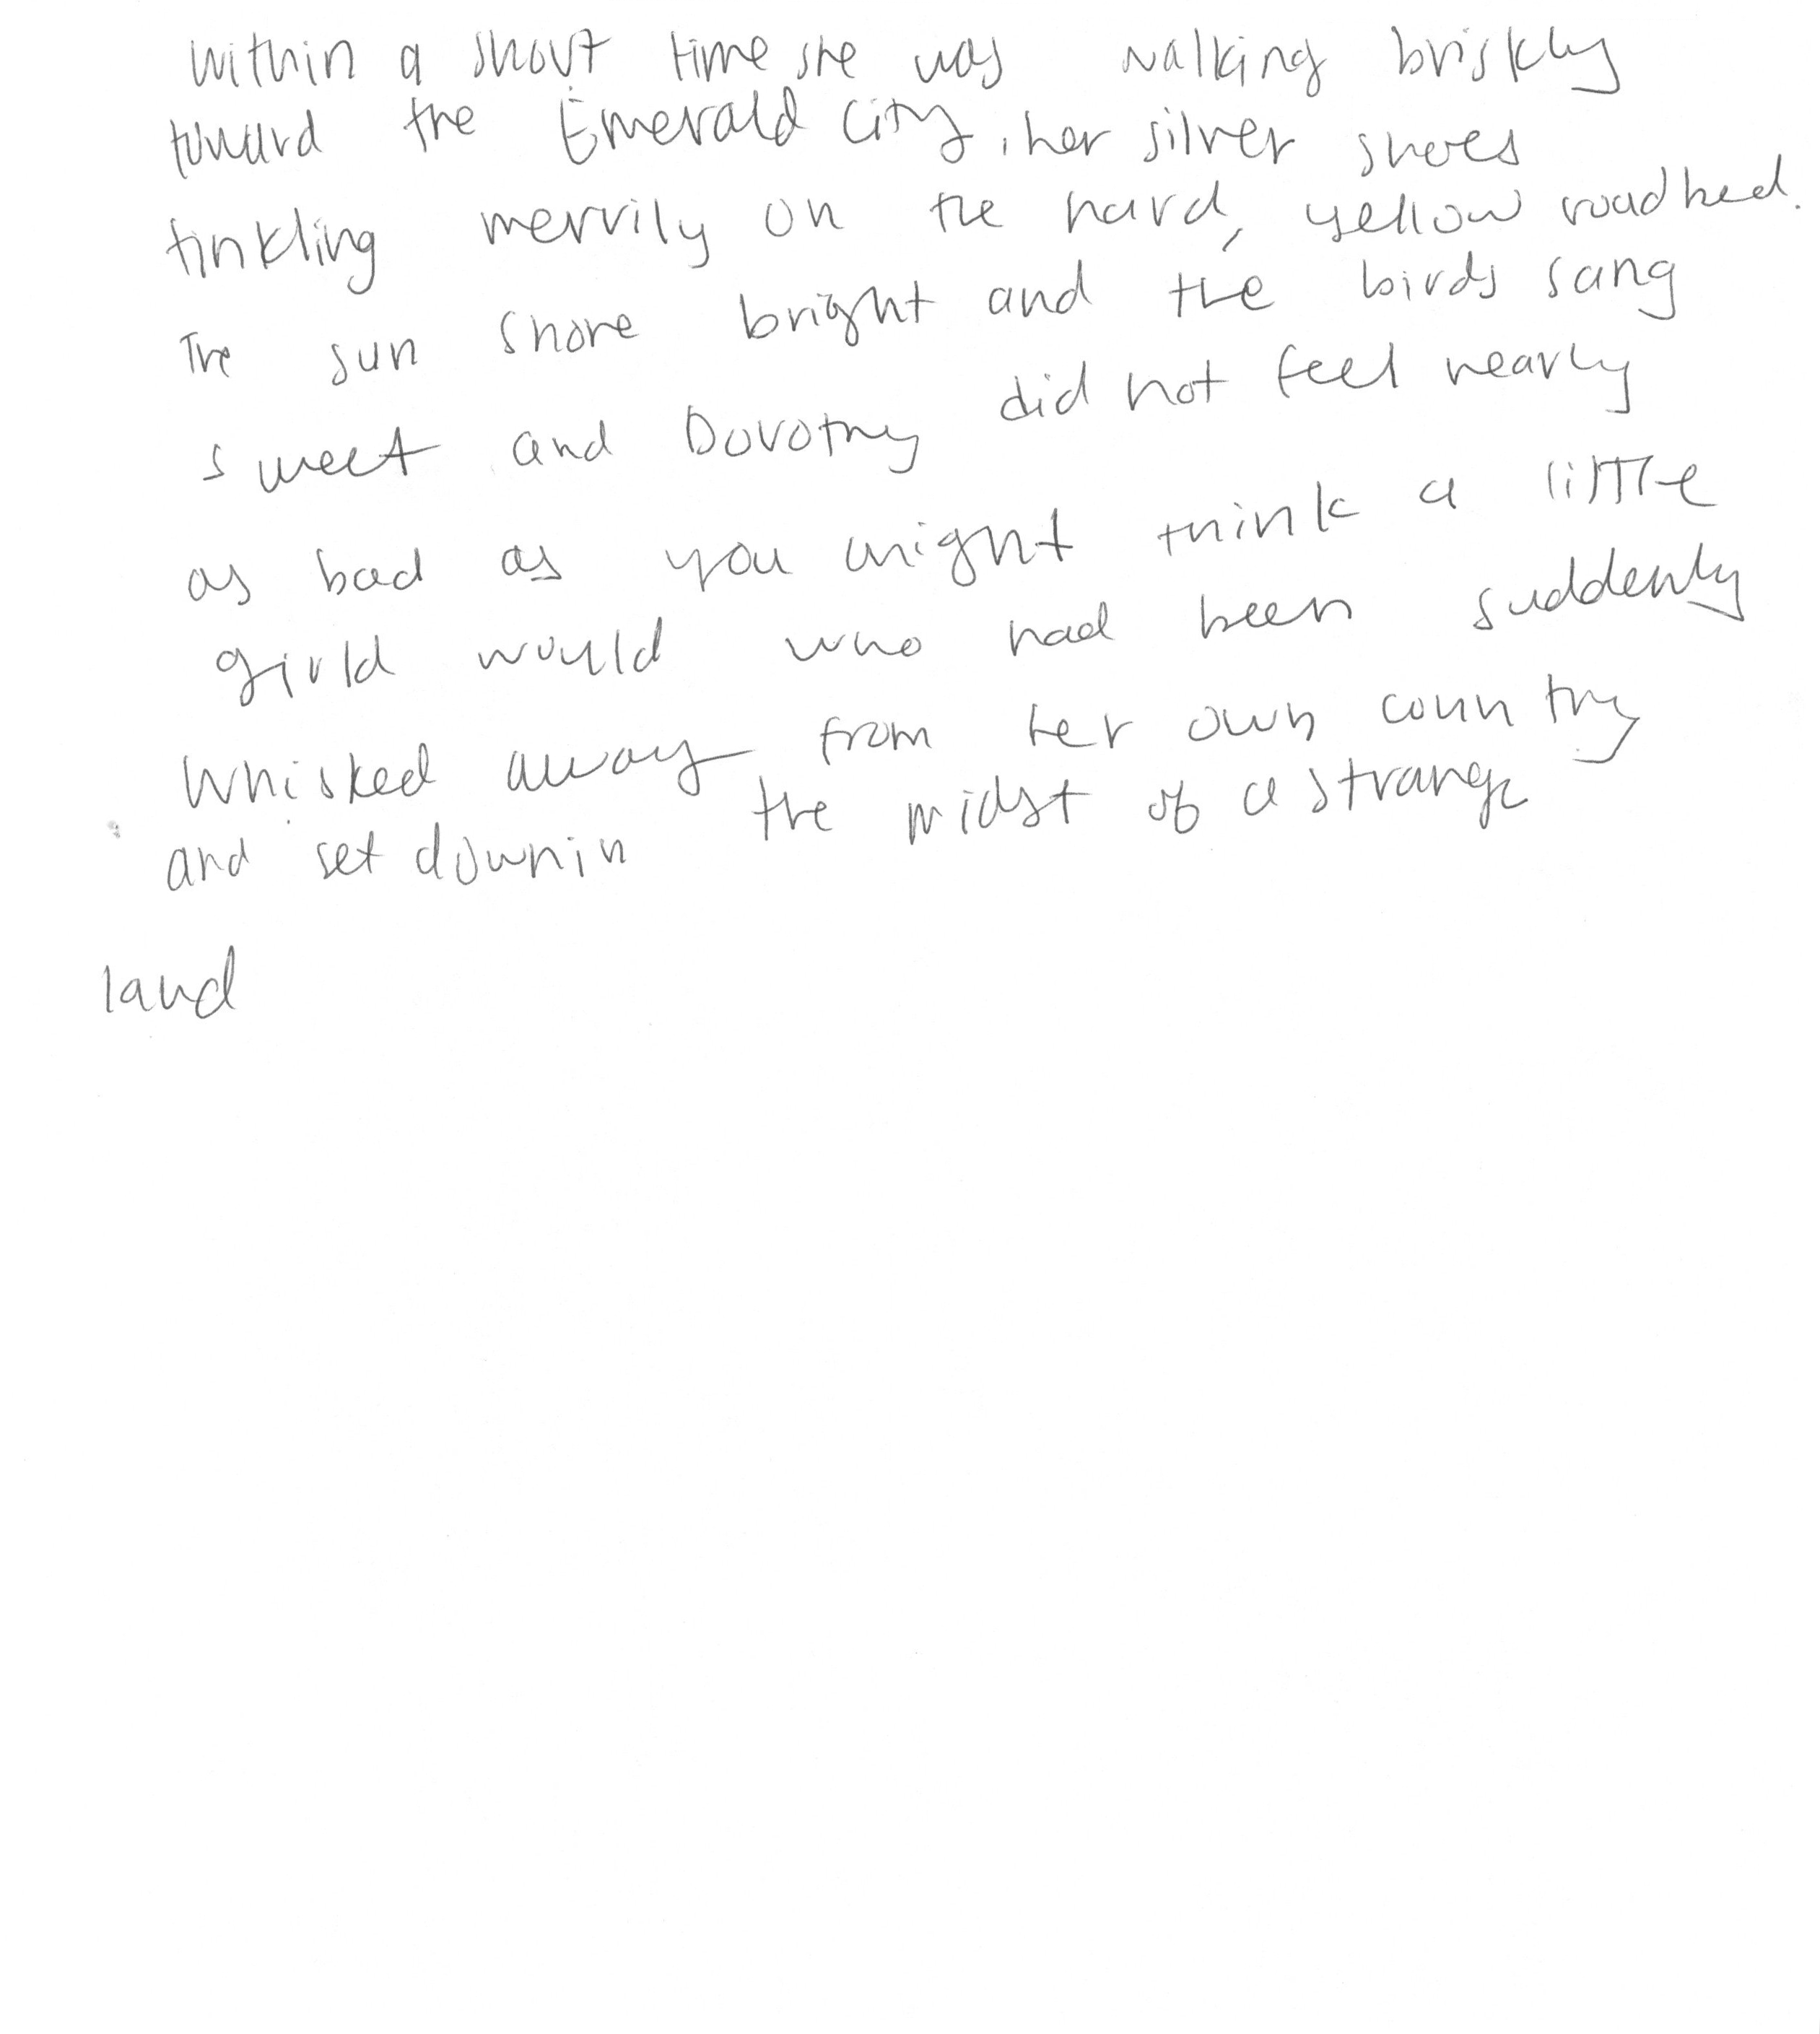 within a short time she was walking briskly
toward the Emerald City, her silver shoes
tinkling merrily on the hard, yellow roadbed.
The sun shone bright and the birds sang
sweet and Dorothy did not feel nearly
as bad as you might think a little
girld would who had been suddenly
whisked away from her own country
and set down in the midst of a strange
land